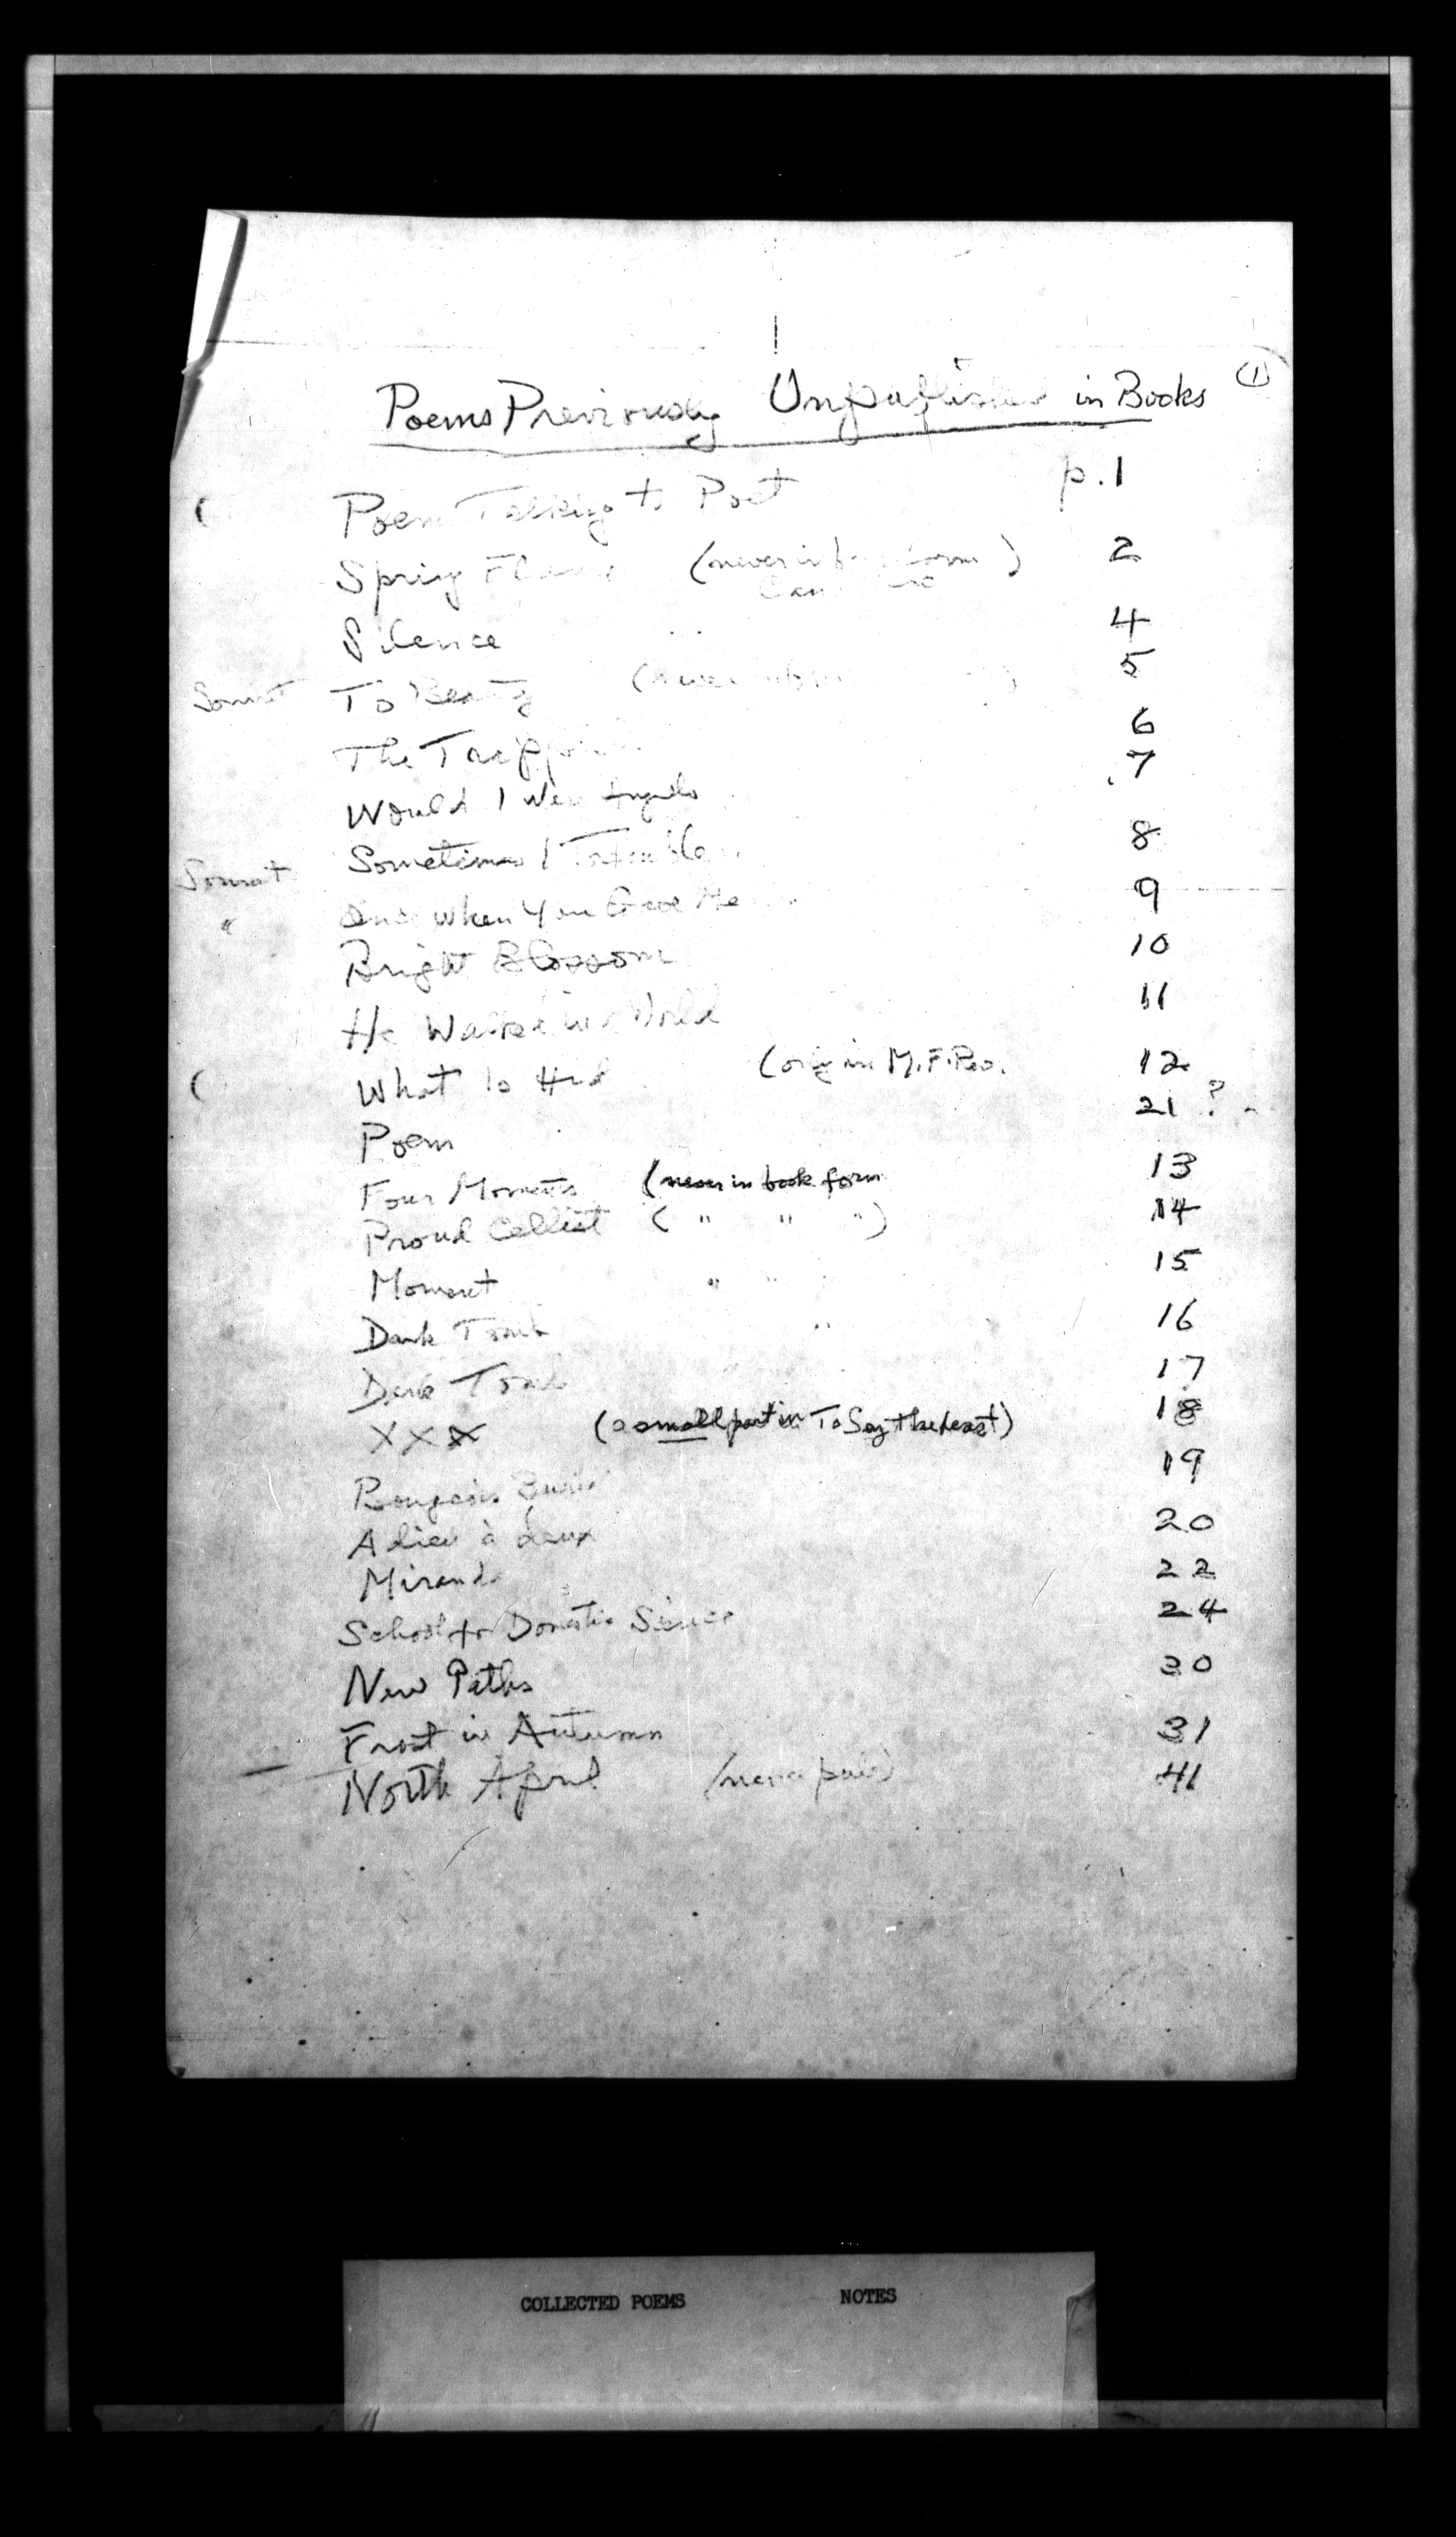 ①
Poems Previously Unpublished in Books
( Poem Talking to Poet p.1
Spring (never in form) 2
Silence 4
Sonnet To Beauty (never 5
The 6
Would I Were 7
Sonnet Sometimes I 8
" When You Gave Me 9
Bright Blossom 10
He Walked in World 11
( What Is (orig in M.F. 12
Poem 21 ?
Four Moments (never in book form 13
Proud Cellist ( " " " ) 14
Moment " " 15
Dark " 16
Dark 17
XXX (a small part in To Say the Least) 18
19
Adieu à deux 20
Miranda 22
School for Domestic Science 24
New Paths 30
Frost in Autumn 31
— North April (never 41
COLLECTED POEMS NOTES